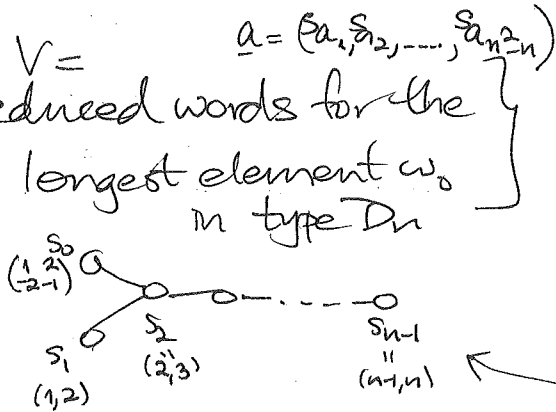 V =
a = (s_{a_1}, s_{a_2}, ----, s_{a_{n^2-n}})
educed words for the
longest element w_0
in type D_n
s_0
(1 2
-2 -1)
s_1
(1,2)
s_2
"
(2,3)
s_{n-1}
"
(n-1,n)